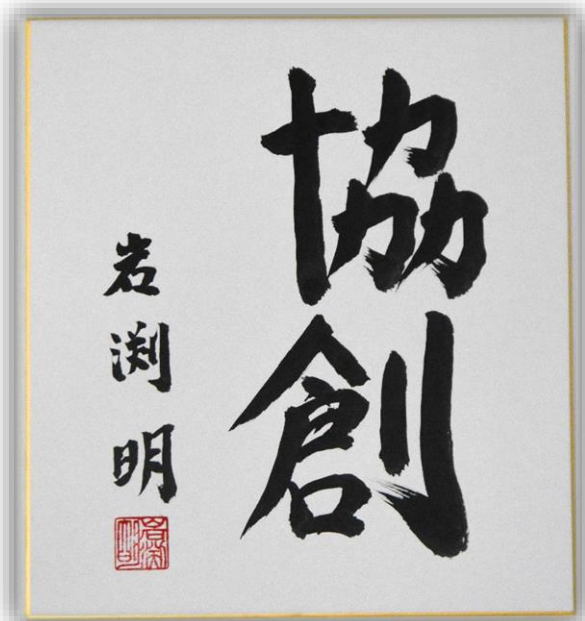 協創
岩渕明